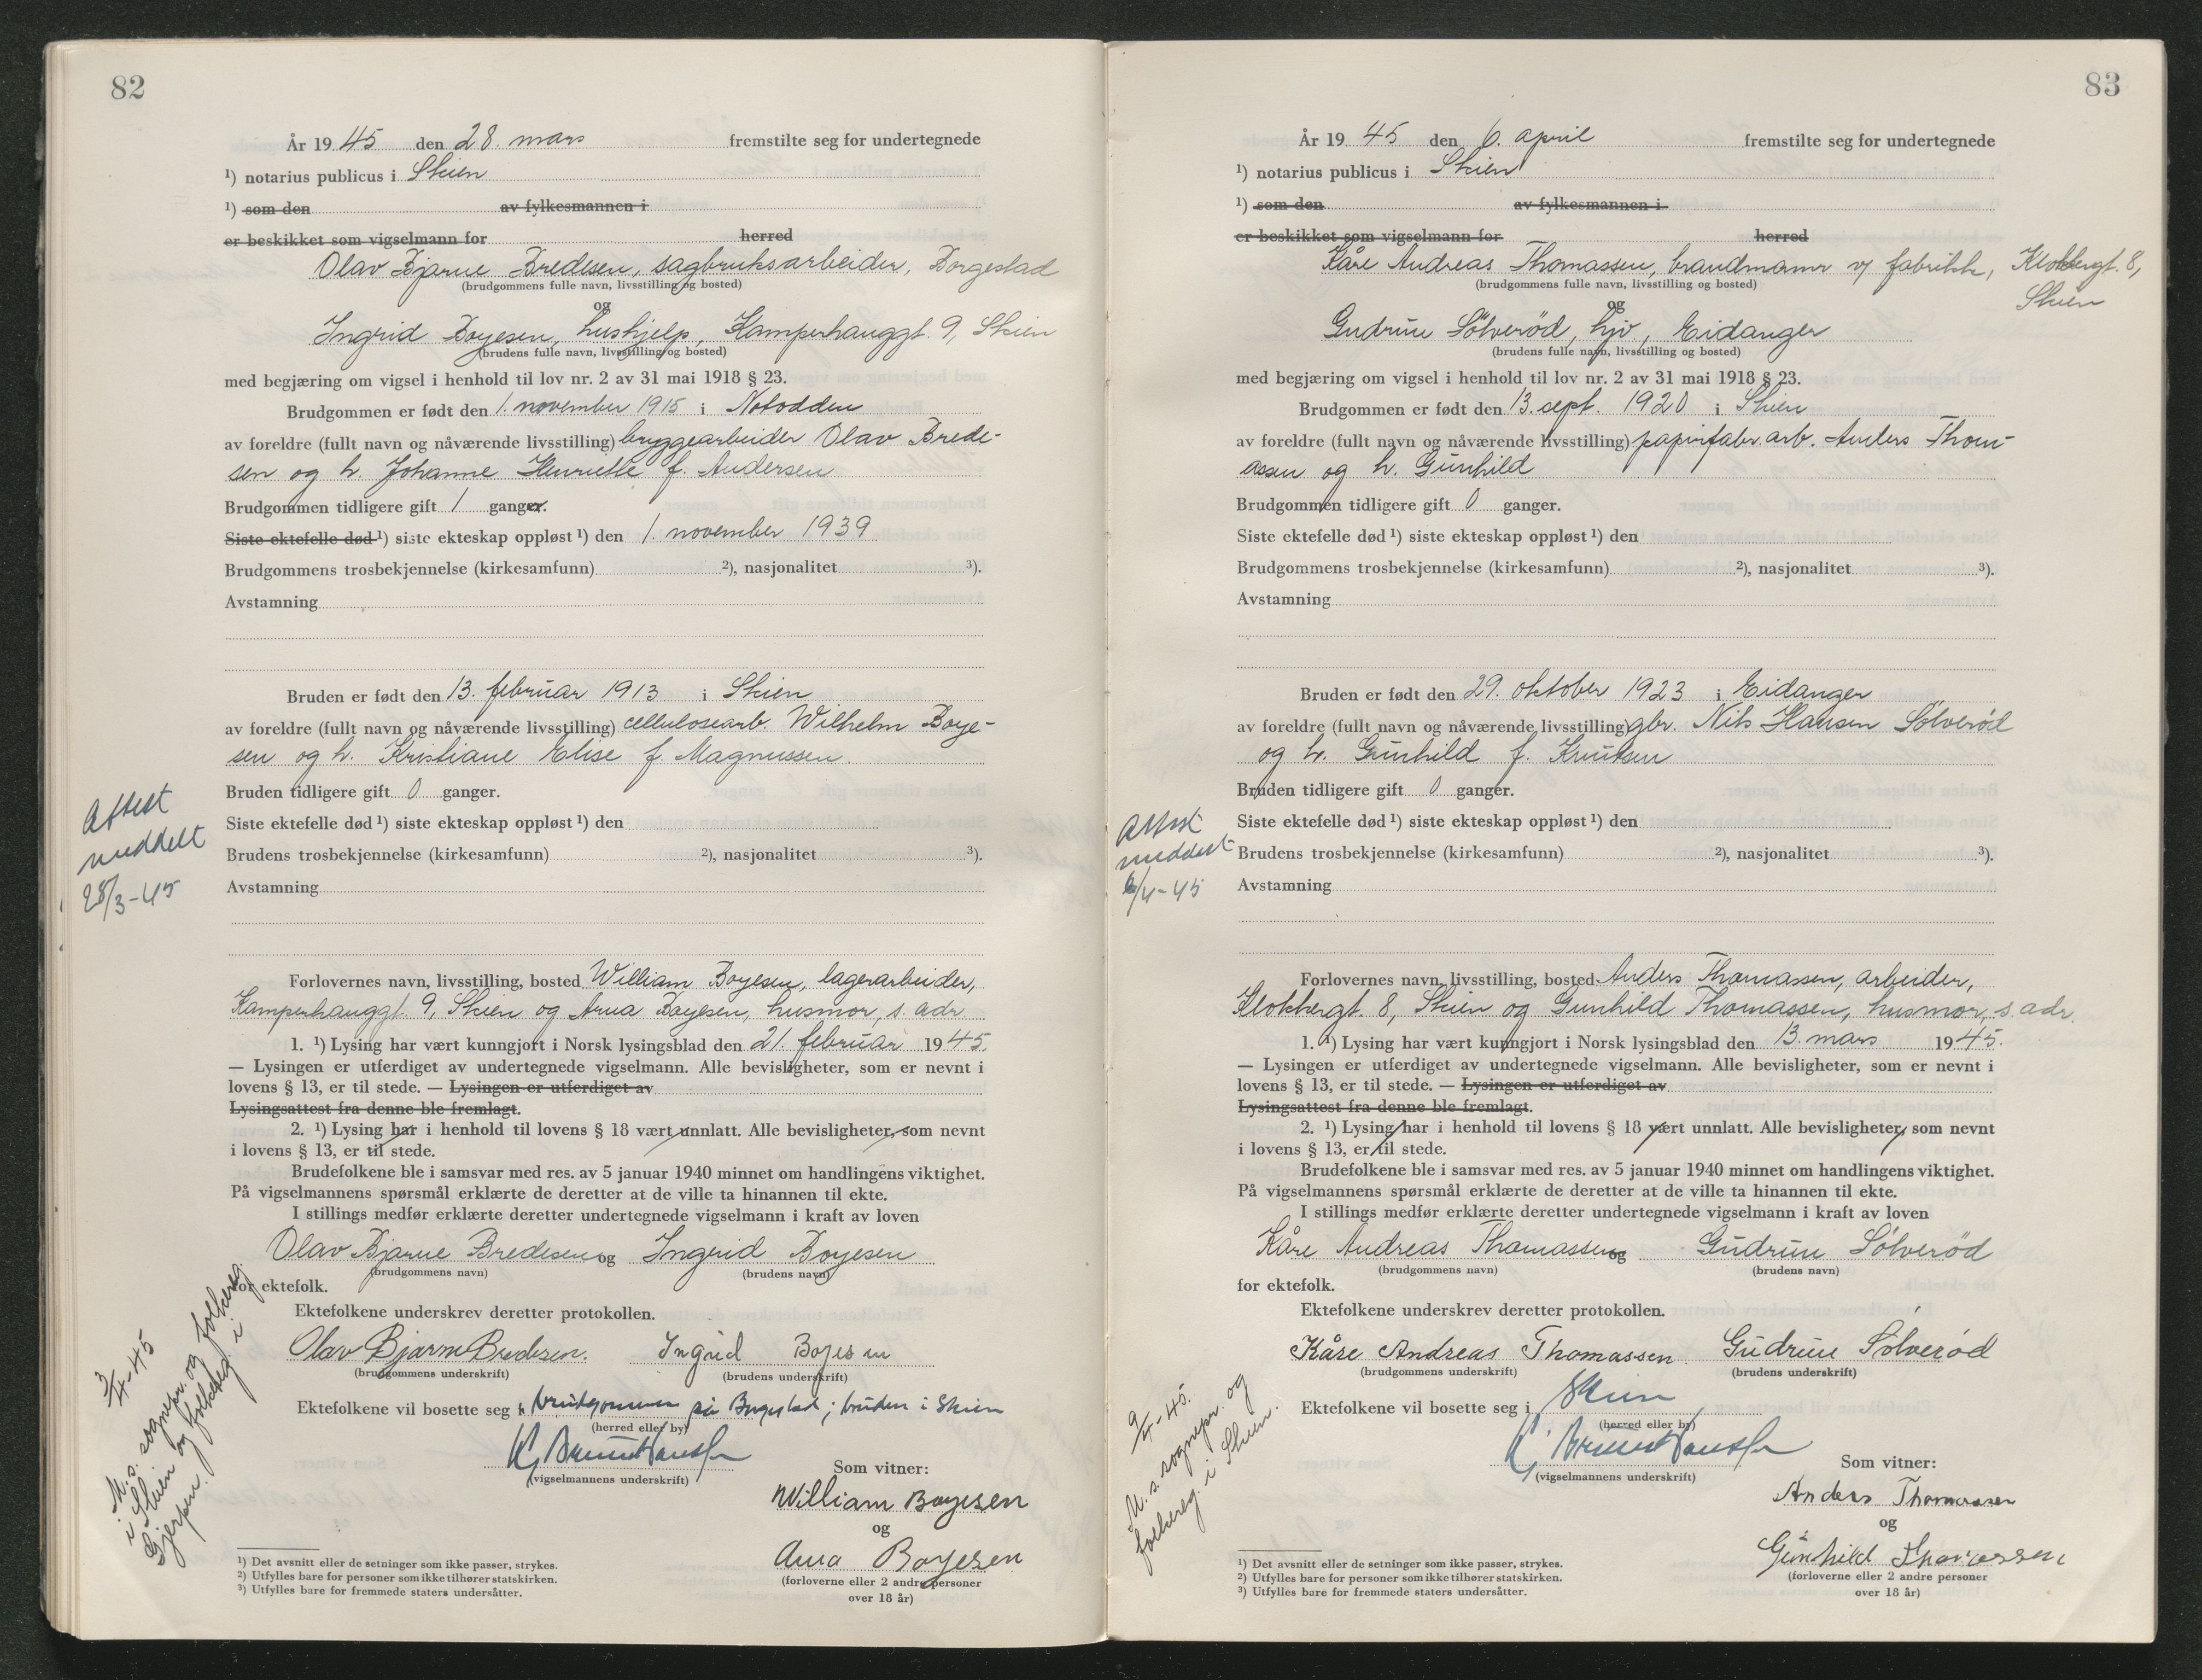 82
År 19 45 den 28. mars fremstilte seg for undertegnede
¹) notarius publicus i Skien
¹) som den av fylkesmannen i
er beskikket som vigselmann for herred
Olav Bjarne Bredesen, sagbruksarbeider, Borgestad
(brudgommens fulle navn, livsstilling og bosted)
og
Ingrid Boyesen, hushjelp, Kamperhauggt. 9, Skien
(brudens fulle navn, livsstilling og bosted)
med begjæring om vigsel i henhold til lov nr. 2 av 31 mai 1918 § 23.
Brudgommen er født den 1. november 1915 i Notodden
av foreldre (fullt navn og nåværende livsstilling) bryggearbeider Olav Brede-
sen og h. Johanne Henriette f. Andersen
Brudgommen tidligere gift 1 ganger.
Siste ektefelle død ¹) siste ekteskap oppløst ¹) den 1. november 1939
Brudgommens trosbekjennelse (kirkesamfunn) ²), nasjonalitet ³).
Avstamning
Bruden er født den 13. februar 1913 i Skien
av foreldre (fullt navn og nåværende livsstilling) cellulosearb. Wilhelm Boye-
sen og h. Kristiane Elise f. Magnussen.
Bruden tidligere gift 0 ganger.
Siste ektefelle død ¹) siste ekteskap oppløst ¹) den
Brudens trosbekjennelse (kirkesamfunn) ²), nasjonalitet ³).
Avstamning
Attest
meddelt
28/3-45
Forlovernes navn, livsstilling, bosted William Boyesen, lagerarbeider,
Kamperhauggt. 9, Skien og Anna Boyesen, husmor, s. adr.
1. ¹) Lysing har vært kunngjort i Norsk lysingsblad den 21. februar 1945.
— Lysingen er utferdiget av undertegnede vigselmann. Alle bevisligheter, som er nevnt i
lovens § 13, er til stede. — Lysingen er utferdiget av
Lysingsattest fra denne ble fremlagt.
2. ¹) Lysing har i henhold til lovens § 18 vært unnlatt. Alle bevisligheter, som nevnt
i lovens § 13, er til stede.
Brudefolkene ble i samsvar med res. av 5 januar 1940 minnet om handlingens viktighet.
På vigselmannens spørsmål erklærte de deretter at de ville ta hinannen til ekte.
I stillings medfør erklærte deretter undertegnede vigselmann i kraft av loven
Olav Bjarne Bredesen og Ingrid Boyesen
(brudgommens navn) (brudens navn)
for ektefolk.
Ektefolkene underskrev deretter protokollen.
Olav Bjarne Bredesen. Ingrid Boyesen
(brudgommens underskrift) (brudens underskrift)
Ektefolkene vil bosette seg i brudgommen på Borgestad; bruden i Skien
(herred eller by)
(vigselmannens underskrift)
Som vitner:
William Boyesen
og
Anna Boyesen
(forloverne eller 2 andre personer
over 18 år)
3/4-45
M. s. sognepr. og folkereg.
i Skien og folkereg. i
Gjerpen.
¹) Det avsnitt eller de setninger som ikke passer, strykes.
²) Utfylles bare for personer som ikke tilhører statskirken.
³) Utfylles bare for fremmede staters undersåtter.
83
År 19 45 den 6. april fremstilte seg for undertegnede
¹) notarius publicus i Skien
¹) som den av fylkesmannen i
er beskikket som vigselmann for herred
Kåre Andreas Thomassen, brandmann v/ fabrikk, Klokbergt. 8,
Skien
(brudgommens fulle navn, livsstilling og bosted)
og
Gudrun Sölveröd, hjv., Eidanger
(brudens fulle navn, livsstilling og bosted)
med begjæring om vigsel i henhold til lov nr. 2 av 31 mai 1918 § 23.
Brudgommen er født den 13. sept. 1920 i Skien
av foreldre (fullt navn og nåværende livsstilling) papirfabr.arb. Anders Thom-
assen og h. Gunhild
Brudgommen tidligere gift 0 ganger.
Siste ektefelle død ¹) siste ekteskap oppløst ¹) den
Brudgommens trosbekjennelse (kirkesamfunn) ²), nasjonalitet ³).
Avstamning
Bruden er født den 29. oktober 1923 i Eidanger
av foreldre (fullt navn og nåværende livsstilling) gbr. Nils Hansen Sölveröd
og h. Gunhild f. Knutsen
Bruden tidligere gift 0 ganger.
Siste ektefelle død ¹) siste ekteskap oppløst ¹) den
Brudens trosbekjennelse (kirkesamfunn) ²), nasjonalitet ³).
Avstamning
Attest
meddelt
6/4-45
Forlovernes navn, livsstilling, bosted Anders Thomassen, arbeider,
Klokbergt. 8, Skien og Gunhild Thomassen, husmor, s. adr.
1. ¹) Lysing har vært kunngjort i Norsk lysingsblad den 13. mars 1945.
— Lysingen er utferdiget av undertegnede vigselmann. Alle bevisligheter, som er nevnt i
lovens § 13, er til stede. — Lysingen er utferdiget av
Lysingsattest fra denne ble fremlagt.
2. ¹) Lysing har i henhold til lovens § 18 vært unnlatt. Alle bevisligheter, som nevnt
i lovens § 13, er til stede.
Brudefolkene ble i samsvar med res. av 5 januar 1940 minnet om handlingens viktighet.
På vigselmannens spørsmål erklærte de deretter at de ville ta hinannen til ekte.
I stillings medfør erklærte deretter undertegnede vigselmann i kraft av loven
Kåre Andreas Thomassen og Gudrun Sölveröd
(brudgommens navn) (brudens navn)
for ektefolk.
Ektefolkene underskrev deretter protokollen.
Kåre Andreas Thomassen. Gudrun Sölveröd
(brudgommens underskrift) (brudens underskrift)
Ektefolkene vil bosette seg i Skien
(herred eller by)
(vigselmannens underskrift)
Som vitner:
Anders Thomassen
og
Gunhild Thomassen
(forloverne eller 2 andre personer
over 18 år)
9/4-45.
M. s. sognepr. og
folkereg. i Skien.
¹) Det avsnitt eller de setninger som ikke passer, strykes.
²) Utfylles bare for personer som ikke tilhører statskirken.
³) Utfylles bare for fremmede staters undersåtter.